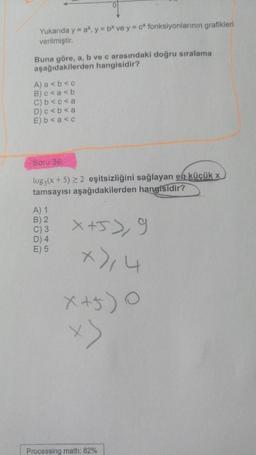 0
Yukarıda y = aˣ, y = bˣ ve y = cˣ fonksiyonlarının grafikleri
verilmiştir.
Buna göre, a, b ve c arasındaki doğru sıralama
aşağıdakilerden hangisidir?
A) a < b < c
B) c < a < b
C) b < c < a
D) c < b < a
E) b < a < c
Soru 36
log₃(x + 5) ≥ 2 eşitsizliğini sağlayan en küçük x
tamsayısı aşağıdakilerden hangisidir?
A) 1
B) 2
C) 3
D) 4
E) 5
x+5 ≥ 9
x ≥ 4
x+5 > 0
x >
Processing math: 82%